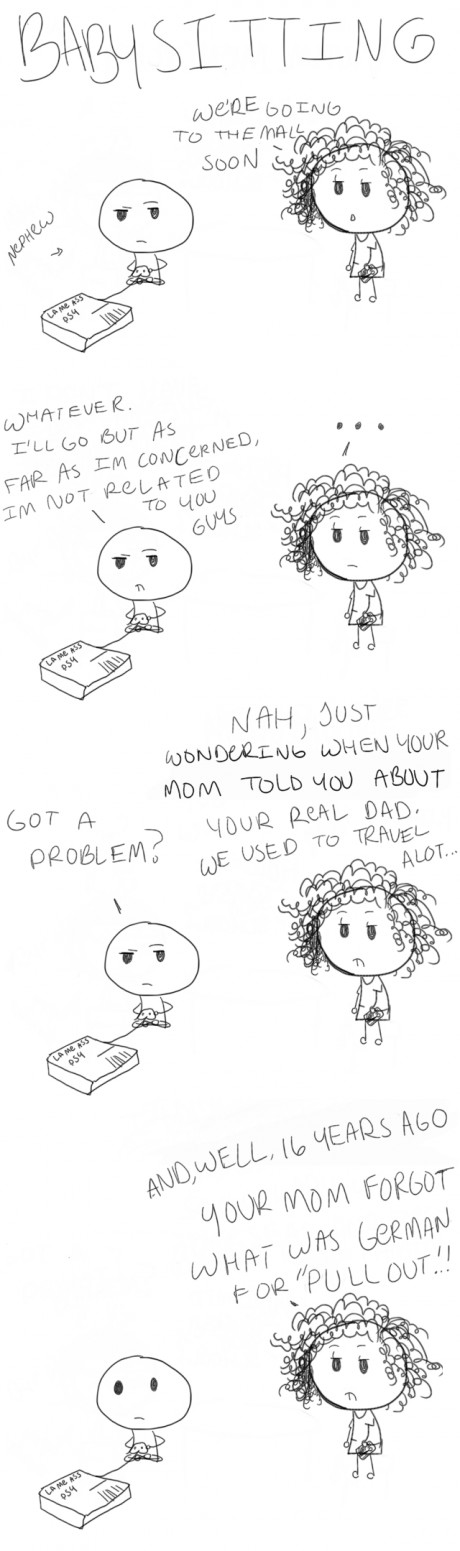 BABYSITTING
WE'RE GOING
TO THE MALL
SOON
NEPHEW
LAME ASS
PS4
WHATEVER.
I'LL GO BUT AS
FAR AS IM CONCERNED,
IM NOT RELATED
TO YOU
GUYS
...
LAME ASS
PS4
GOT A
PROBLEM?
NAH, JUST
WONDERING WHEN YOUR
MOM TOLD YOU ABOUT
YOUR REAL DAD.
WE USED TO TRAVEL
ALOT...
LAME ASS
PS4
AND, WELL, 16 YEARS AGO
YOUR MOM FORGOT
WHAT WAS GERMAN
FOR "PULL OUT"!!
LAME ASS
PS4